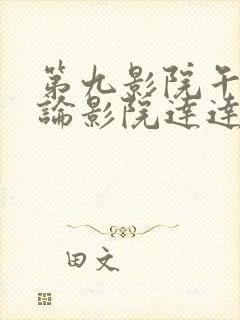 第九影院午
論影院達達
田文